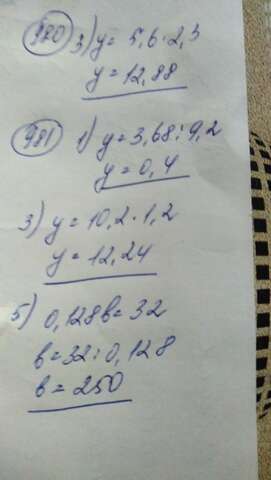 980 3) y = 5,6 · 2,3
y = 12,88
981 1) y = 3,68 : 9,2
y = 0,4
3) y = 10,2 · 1,2
y = 12,24
5) 0,128b = 32
b = 32 : 0,128
b = 250